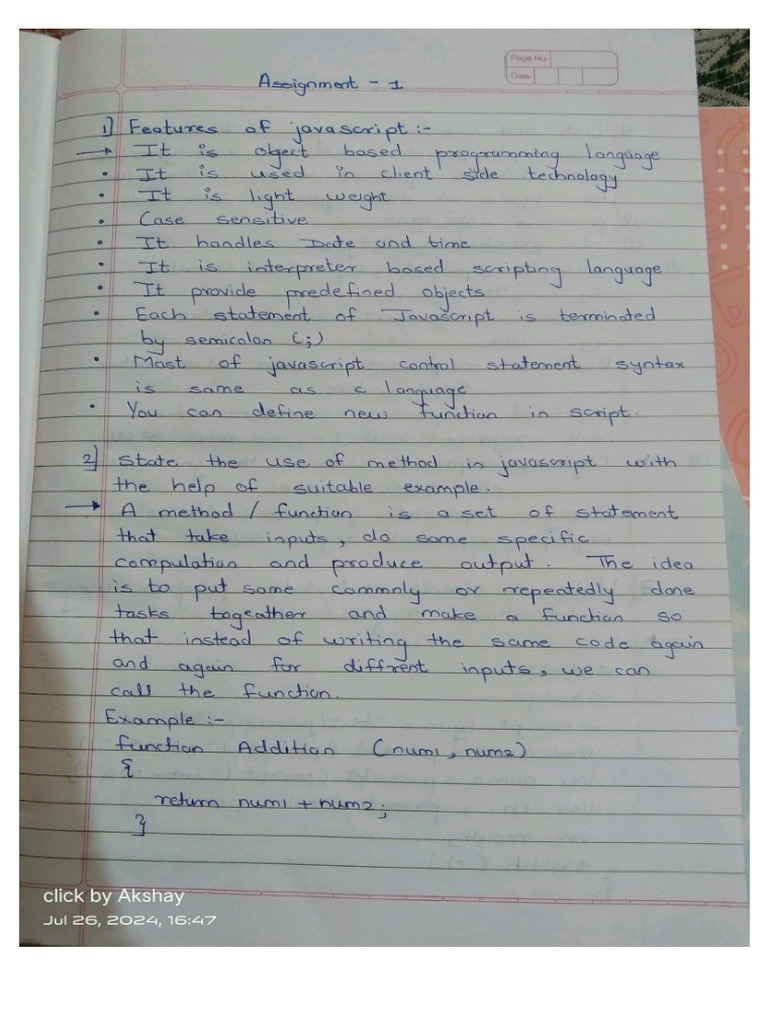 Page No.
Date
Assignment - 1
1] Features of javascript :-
→ It is object based programming language
• It is used in client side technology
• It is light weight
• Case sensitive
• It handles Date and time
• It is interpreter based scripting language
• It provide predefined objects
• Each statement of Javascript is terminated
by semicolon (;)
• Most of javascript control statement syntax
is same as c language
• You can define new function in script.
2] State the use of method in javascript with
the help of suitable example.
→ A method / function is a set of statement
that take inputs, do some specific
compulation and produce output. The idea
is to put some commonly or repeatedly done
tasks togeather and make a function so
that instead of writing the same code again
and again for diffrent inputs, we can
call the function.
Example :-
function Addition (num1, num2)
{
return num1 + num2;
}
click by Akshay
Jul 26, 2024, 16:47